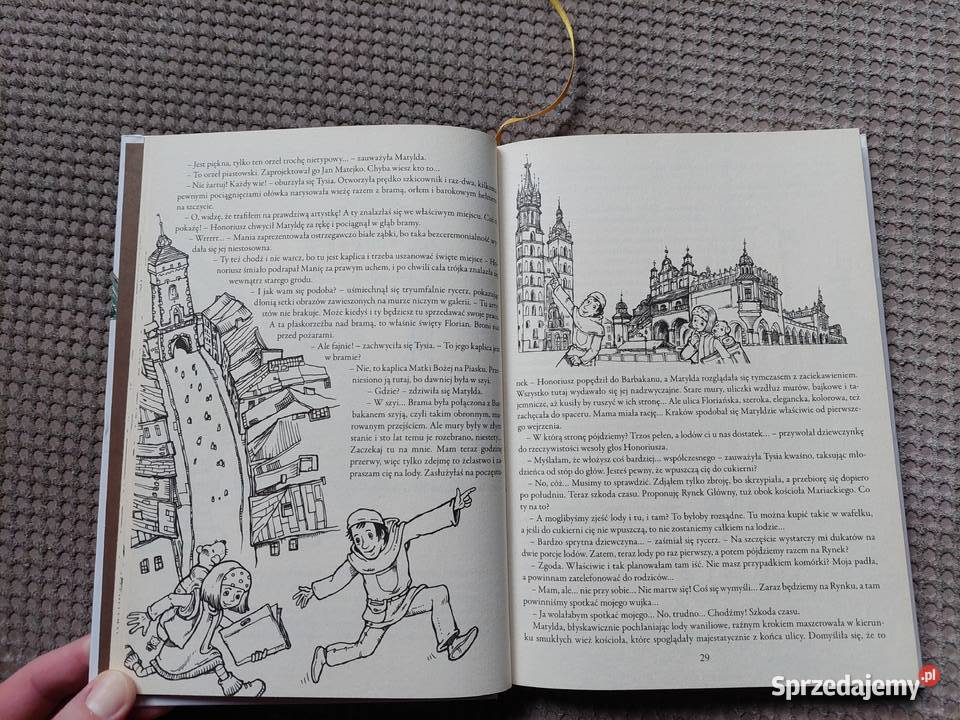 – Jest piękna, tylko ten orzeł trochę nietypowy... – zauważyła Matylda.
– To orzeł piastowski. Zaprojektował go Jan Matejko. Chyba wiesz kto to...
– Nie żartuj! Każdy wie! – oburzyła się Tysia. Otworzyła prędko szkicownik i raz-dwa, kilkoma
pewnymi pociągnięciami ołówka narysowała wieżę razem z bramą, orłem i barokowym hełmem
na szczycie.
– O, widzę, że trafiłem na prawdziwą artystkę! A ty znalazłaś się we właściwym miejscu. Coś ci
pokażę! – Honoriusz chwycił Matyldę za rękę i pociągnął w głąb bramy.
– Wrrrr... – Mania zaprezentowała ostrzegawczo białe ząbki, bo taka bezceremonialność wy-
dała się jej niestosowna.
– Ty też chodź i nie warcz, bo tu jest kaplica i trzeba uszanować święte miejsce – Ho-
noriusz śmiało podrapał Manię za prawym uchem, i po chwili cała trójka znalazła się
wewnątrz starego grodu.
– I jak wam się podoba? – uśmiechnął się tryumfalnie rycerz, pokazując
dłonią setki obrazów zawieszonych na murze niczym w galerii. – Tu arty-
stów nie brakuje. Może kiedyś i ty będziesz tu sprzedawać swoje prace.
A ta płaskorzeźba nad bramą, to właśnie święty Florian. Broni nas
przed pożarami.
– Ale fajnie! – zachwyciła się Tysia. – To jego kaplica jest
w bramie?
– Nie, to kaplica Matki Bożej na Piasku. Prze-
niesiono ją tutaj, bo dawniej była w szyi.
– Gdzie? – zdziwiła się Matylda.
– W szyi... Brama była połączona z Bar-
bakanem szyją, czyli takim obronnym, mu-
rowanym przejściem. Ale mury były w złym
stanie i sto lat temu je rozebrano, niestety...
Zaczekaj tu na mnie. Mam teraz godzinę
przerwy, więc tylko zdejmę to żelastwo i za-
praszam cię na lody. Zasłużyłaś na poczęstu-
nek – Honoriusz popędził do Barbakanu, a Matylda rozglądała się tymczasem z zaciekawieniem.
Wszystko tutaj wydawało się jej nadzwyczajne. Stare mury, uliczki wzdłuż murów, bajkowe i ta-
jemnicze, aż kusiły by ruszyć w ich stronę... Ale ulica Floriańska, szeroka, elegancka, kolorowa, też
zachęcała do spaceru. Mama miała rację... Kraków spodobał się Matyldzie właściwie od pierwsze-
go wejrzenia.
– W którą stronę pójdziemy? Trzos pełen, a lodów ci u nas dostatek... – przywołał dziewczynkę
do rzeczywistości wesoły głos Honoriusza.
– Myślałam, że włożysz coś bardziej... współczesnego – zauważyła Tysia kwaśno, taksując mło-
dzieńca od stóp do głów. Jesteś pewny, że wpuszczą cię do cukierni?
– No, cóż... Musimy to sprawdzić. Zdjąłem tylko zbroję, bo skrzypiała, a przebiorę się dopiero
po południu. Teraz szkoda czasu. Proponuję Rynek Główny, tuż obok kościoła Mariackiego. Co
ty na to?
– A moglibyśmy zjeść lody i tu, i tam? To byłoby rozsądne. Tu można kupić takie w wafelku,
a jeśli do cukierni cię nie wpuszczą, to nie zostaniemy całkiem na lodzie...
– Bardzo sprytna dziewczyna... – zaśmiał się rycerz. – Na szczęście wystarczy mi dukatów na
dwie porcje lodów. Zatem, teraz lody po raz pierwszy, a potem pójdziemy razem na Rynek?
– Zgoda. Właściwie i tak planowałam tam iść. Nie masz przypadkiem komórki? Moja padła,
a powinnam zatelefonować do rodziców...
– Mam, ale... nie przy sobie... Nie martw się! Coś się wymyśli... Zaraz będziemy na Rynku, a tam
powinniśmy spotkać mojego wujka...
– Ja wolałabym spotkać mojego... No, trudno... Chodźmy! Szkoda czasu.
Matylda, błyskawicznie pochłaniając lody waniliowe, raźnym krokiem maszerowała w kierun-
ku smukłych wież kościoła, które spoglądały majestatycznie z końca ulicy. Domyśliła się, że to
29
Sprzedajemy.pl